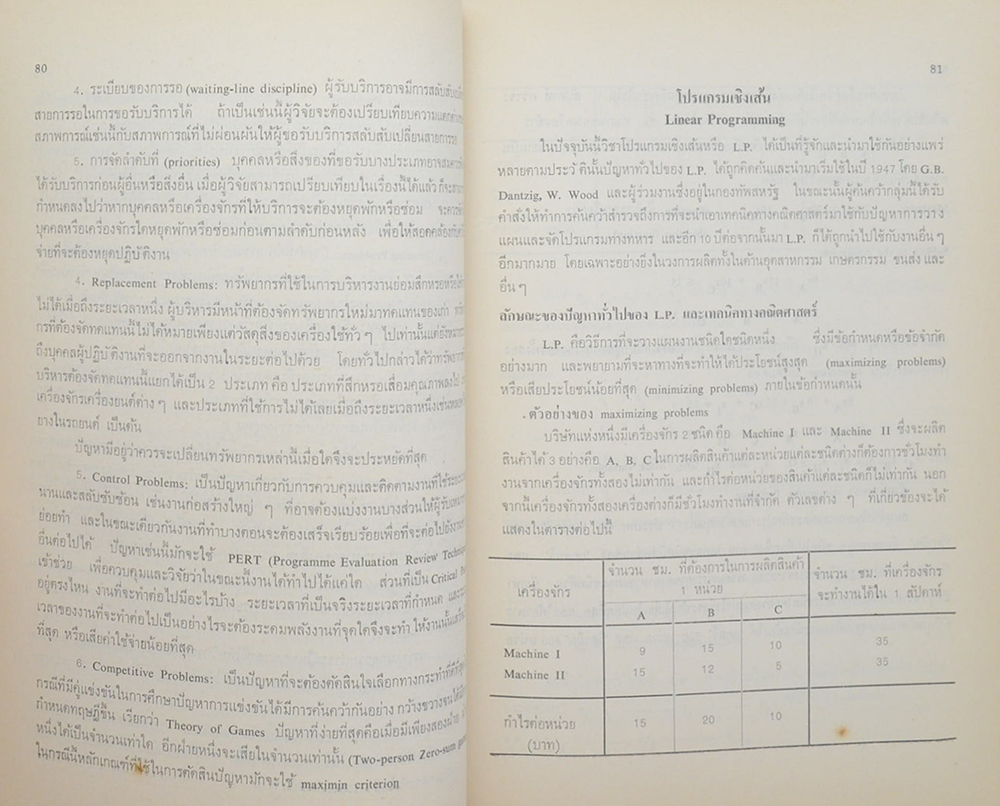 80
4. ระเบียบของการรอ (waiting-line discipline) ผู้รับบริการอาจมีการสลับสับเปลี่ยน
สายการรอในการขอรับบริการได้ ถ้าเป็นเช่นนี้ผู้วิจัยจะต้องเปรียบเทียบความแตกต่าง
สภาพการณ์เช่นนี้กับสภาพการณ์ที่ไม่ผ่อนผันให้ผู้ขอรับบริการสลับสับเปลี่ยนสายการรอ
5. การจัดลำดับที่ (priorities) บุคคลหรือสิ่งของที่ขอรับบางประเภทอาจสมควร
ได้รับบริการก่อนผู้อื่นหรือสิ่งอื่น เมื่อผู้วิจัยสามารถเปรียบเทียบในเรื่องนี้ได้แล้ว ก็จะ
กำหนดลงไปว่าหากบุคคลหรือเครื่องจักรที่ให้บริการจะต้องหยุดพักหรือซ่อม จะควร
บุคคลหรือเครื่องจักรใดหยุดพักหรือซ่อมก่อนตามลำดับก่อนหลัง เพื่อให้สอดคล้องกับ
จ่ายที่จะต้องหยุดปฏิบัติงาน
4. Replacement Problems: ทรัพยากรที่ใช้ในการบริหารงานย่อมสึกหรอหรือ
ไม่ได้เมื่อถึงระยะเวลาหนึ่ง ผู้บริหารมีหน้าที่ต้องจัดทรัพยากรใหม่มาทดแทนของเก่า
กรที่ต้องจัดทดแทนนี้ไม่ได้หมายเพียงแต่วัสดุสิ่งของเครื่องใช้ทั่ว ๆ ไปเท่านั้นแต่ยัง
ถึงบุคคลผู้ปฏิบัติงานที่จะออกจากงานในระยะต่อไปด้วย โดยทั่วไปกล่าวได้ว่าทรัพยากร
บริหารต้องจัดทดแทนนี้แยกได้เป็น 2 ประเภท คือ ประเภทที่สึกหรอเสื่อมคุณภาพลงไป
เครื่องจักรเครื่องยนต์ต่าง ๆ และประเภทที่ใช้การไม่ได้เลยเมื่อถึงระยะเวลาหนึ่งเช่น
ยางในรถยนต์ เป็นต้น
ปัญหามีอยู่ว่าควรจะเปลี่ยนทรัพยากรเหล่านี้เมื่อใดจึงจะประหยัดที่สุด
5. Control Problems: เป็นปัญหาเกี่ยวกับการควบคุมและติดตามงานที่ใช้ระยะ
นานและสลับซับซ้อน เช่นงานก่อสร้างใหญ่ ๆ ที่อาจต้องแบ่งงานบางส่วนให้ผู้รับเหมา
ย่อยทำ และในขณะเดียวกันงานที่ทำบางตอนจะต้องเสร็จเรียบร้อยเพื่อที่จะต่อไปยังงาน
อื่นต่อไปได้ ปัญหาเช่นนี้มักจะใช้ PERT (Programme Evaluation Review Technique)
เข้าช่วย เพื่อควบคุมและวิจัยว่าในขณะนี้งานได้ทำไปได้แค่ใด ส่วนที่เป็น Critical
อยู่ตรงไหน งานที่จะทำต่อไปมีอะไรบ้าง ระยะเวลาที่เป็นจริงระยะเวลาที่กำหนด และ
เวลาของงานที่จะทำต่อไปเป็นอย่างไรจะต้องระดมพลังงานที่จุดใดจึงจะทำ ให้งานนั้น
ที่สุด หรือเสียค่าใช้จ่ายน้อยที่สุด
6. Competitive Problems: เป็นปัญหาที่จะต้องตัดสินใจเลือกทางกระทำที่ดี
กรณีที่มีคู่แข่งขันในการศึกษาปัญหาการแข่งขันได้มีการค้นคว้ากันอย่าง กว้างขวางจนได้
กำหนดทฤษฎีขึ้น เรียกว่า Theory of Games ปัญหาที่ง่ายที่สุดคือเมื่อมีเพียงสองฝ่าย
หนึ่งได้เป็นจำนวนเท่าใด อีกฝ่ายหนึ่งจะเสียในจำนวนเท่านั้น (Two-person Zero-sum
ในกรณีนี้หลักเกณฑ์ที่ใช้ในการตัดสินปัญหามักจะใช้ maximin criterion
81
โปรแกรมเชิงเส้น
Linear Programming
ในปัจจุบันนี้วิชาโปรแกรมเชิงเส้นหรือ L.P. ได้เป็นที่รู้จักและนำมาใช้กันอย่างแพร่
หลายตามประวัตินั้นปัญหาทั่วไปของ L.P. ได้ถูกคิดค้นและนำมาเริ่มใช้ในปี 1947 โดย G.B.
Dantzig, W. Wood และผู้ร่วมงานซึ่งอยู่ในกองทัพสหรัฐ ในขณะนั้นผู้ค้นคว้ากลุ่มนี้ได้รับ
คำสั่งให้ทำการค้นคว้าสำรวจถึงการที่จะนำเอาเทคนิคทางคณิตศาสตร์มาใช้กับปัญหาการวาง
แผนและจัดโปรแกรมทางทหาร และอีก 10 ปีต่อจากนั้นมา L.P. ก็ได้ถูกนำไปใช้กับงานอื่น ๆ
อีกมากมาย โดยเฉพาะอย่างยิ่งในวงการผลิตทั้งในด้านอุตสาหกรรม เกษตรกรรม ขนส่ง และ
อื่น ๆ
ลักษณะของปัญหาทั่วไปของ L.P. และเทคนิคทางคณิตศาสตร์
L.P. คือวิธีการที่จะวางแผนงานชนิดใดชนิดหนึ่ง ซึ่งมีข้อกำหนดหรือข้อจำกัด
อย่างมาก และพยายามที่จะหาทางที่จะทำให้ได้ประโยชน์สูงสุด (maximizing problems)
หรือเสียประโยชน์น้อยที่สุด (minimizing problems) ภายในข้อกำหนดนั้น
. ตัวอย่างของ maximizing problems
บริษัทแห่งหนึ่งมีเครื่องจักร 2 ชนิด คือ Machine I และ Machine II ซึ่งจะผลิต
สินค้าได้ 3 อย่างคือ A, B, C ในการผลิตสินค้าแต่ละหน่วยแต่ละชนิดต่างก็ต้องการชั่วโมงทำ
งานจากเครื่องจักรทั้งสองไม่เท่ากัน และกำไรต่อหน่วยของสินค้าแต่ละชนิดก็ไม่เท่ากัน นอก
จากนี้เครื่องจักรทั้งสองเครื่องต่างก็มีชั่วโมงทำงานที่จำกัด ตัวเลขต่าง ๆ ที่เกี่ยวข้องจะได้
แสดงในตารางต่อไปนี้
เครื่องจักร จำนวน ชม. ที่ต้องการในการผลิตสินค้า 1 หน่วย จำนวน ชม. ที่เครื่องจักร จะทำงานได้ใน 1 สัปดาห์
A B C
Machine I 9 15 10 35
Machine II 15 12 5 35
กำไรต่อหน่วย 15 20 10
(บาท)